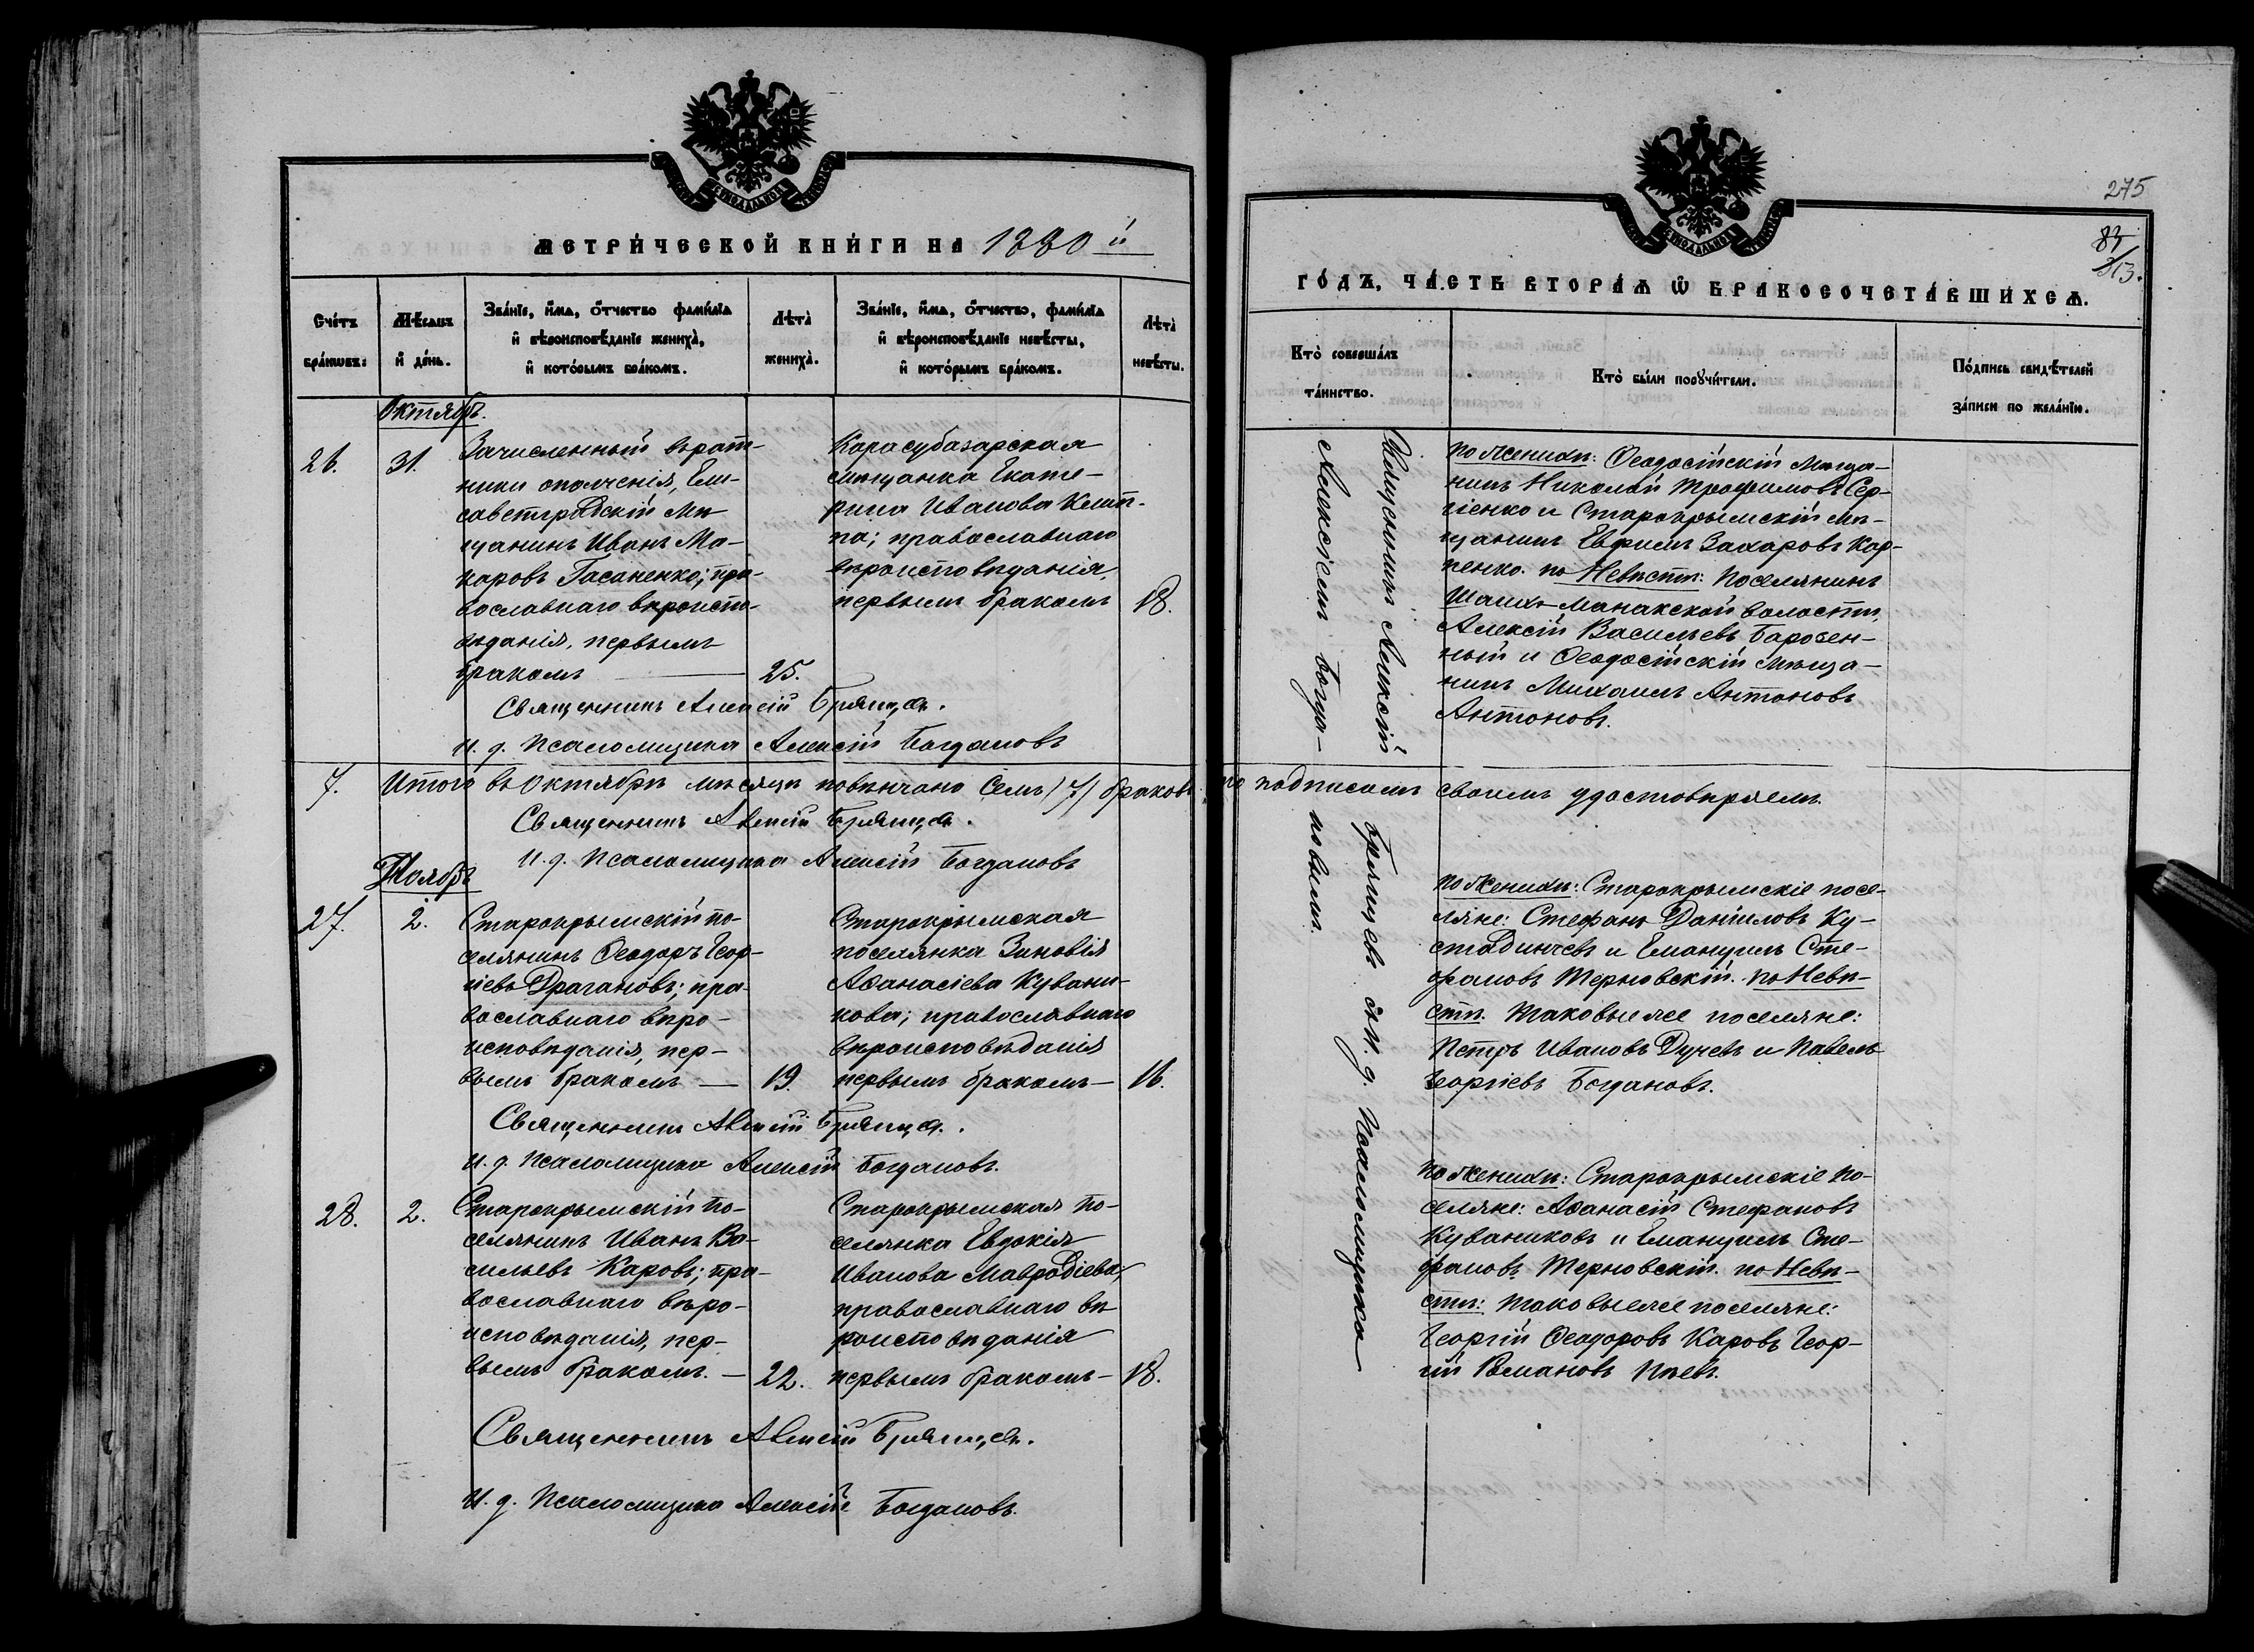 МЕТРИЧЕСКОЙ КНИГИ НА 1880 й
Счетъ браковъ:
Мѣсяцъ и день.
Званіе, имя, отчество фамилія
и вѣроисповѣданіе жениха,
и которымъ бракомъ.
Лѣта жениха.
Званіе, имя, отчество, фамилія
и вѣроисповѣданіе невѣсты,
и которымъ бракомъ.
Лѣта невѣсты.
Октябрь.
26.
31.
Зачисленный въ рат-
ники ополченія, Ели-
саветградскій Мѣ-
щанинъ Иванъ Ма-
каровъ Гасаненко; пра-
вославнаго вѣроиспо-
вѣданія, первымъ
бракомъ
25.
Карасубазарская
мѣщанка Екате-
рина Иванова
православнаго
вѣроисповѣданія,
первымъ бракомъ
18.
Священникъ Алексій Брянцевъ.
И. д. Псаломщика Алексій Богдановъ
7. Итого въ Октябрѣ мѣсяцѣ повѣнчано Семь (7) браковъ
Священникъ Алексій Брянцевъ.
И. д. Псаломщика Алексій Богдановъ
Ноябрь
27.
2.
Старокрымскій по-
селянинъ Ѳеодоръ Геор-
гіевъ Драгановъ; пра-
вославнаго вѣро-
исповѣданія, пер-
вымъ бракомъ —
19.
Старокрымская
поселянка Зиновія
Аѳанасіева Кувани-
кова; православнаго
вѣроисповѣданія
первымъ бракомъ —
16.
Священникъ Алексій Брянцевъ.
И. д. Псаломщика Алексій Богдановъ.
28.
2.
Старокрымскій по-
селянинъ Иванъ Ва-
сильевъ Каровъ; пра-
вославнаго вѣро-
исповѣданія, пер-
вымъ бракомъ. —
22.
Старокрымская по-
селянка Евдокія
Иванова Мавродіева,
православнаго вѣ-
роисповѣданія
первымъ бракомъ —
18.
Священникъ Алексій Брянцевъ.
И. д. Псаломщика Алексій Богдановъ.
275
313.
ГОДЪ, ЧАСТЬ ВТОРАЯ Ѡ БРАКОСОЧЕТАВШИХСЯ.
Кто совершалъ
таинство.
Кто были поручители.
Подпись свидѣтелей
записи по желанію.
Священникъ Алексій Брянцевъ съ И. д. Псаломщика
Алексіемъ Богда- новымъ.
по Женихѣ: Ѳеодосійскій Мѣща-
нинъ Николай Трофимовъ Сер-
гіенко и Старокрымскій мѣ-
щанинъ Евфимъ Захаровъ Кар-
пенко. по Невѣстѣ: поселянинъ
Шаихъ-Манакской волости,
Алексій Васильевъ
и Ѳеодосійскій мѣща-
нинъ Михаилъ Антоновъ
Антоновъ.
по подписомъ своимъ удостовѣряемъ.
по Женихѣ: Старокрымскіе посе-
ляне: Стефанъ Даніиловъ Ку-
стадинчевъ и Емануилъ Сте-
фановъ Терновскій. по Невѣ-
стѣ. таковые же поселяне:
Петръ Ивановъ Дучевъ и Павелъ
Георгіевъ Богдановъ.
по Женихѣ: Старокрымскіе по-
селяне: Аѳанасій Стефановъ
Куваниковъ и Емануилъ Сте-
фановъ Терновскій. по Невѣ-
стѣ: таковые же поселяне:
Георгій Ѳеодоровъ Каровъ Геор-
гій Романовъ